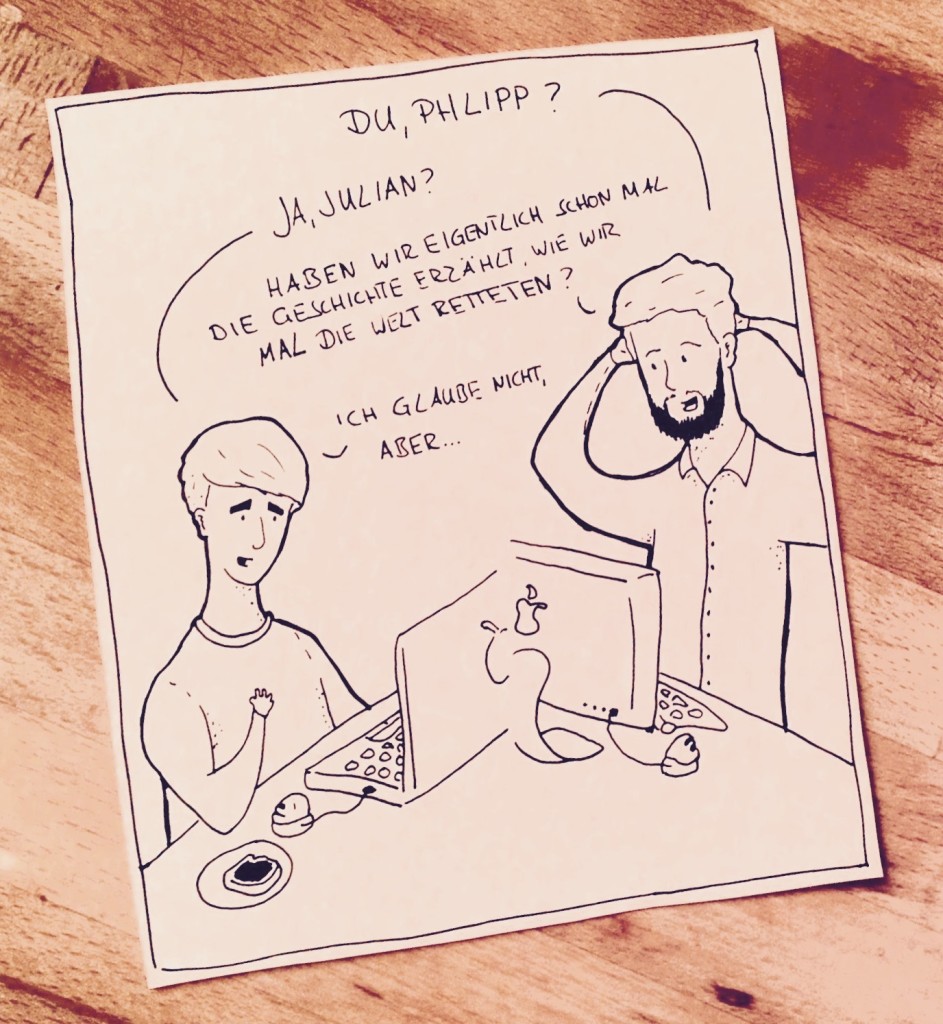 DU, PHLIPP?
JA, JULIAN?
HABEN WIR EIGENTLICH SCHON MAL
DIE GESCHICHTE ERZÄHLT, WIE WIR
MAL DIE WELT RETTETEN?
ICH GLAUBE NICHT,
ABER...